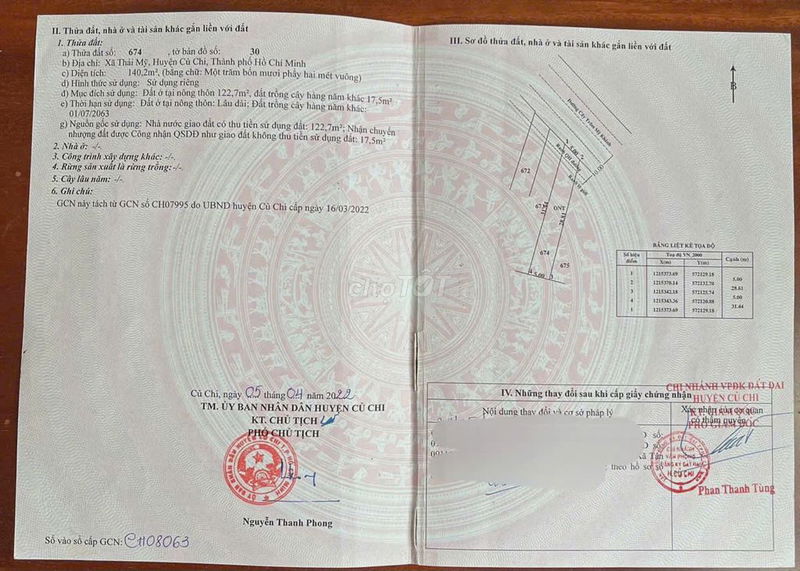 II. Thửa đất, nhà ở và tài sản khác gắn liền với đất
1. Thửa đất:
a) Thửa đất số: 674, tờ bản đồ số: 30
b) Địa chỉ: Xã Thái Mỹ, Huyện Củ Chi, Thành phố Hồ Chí Minh
c) Diện tích: 140,2m², (bằng chữ: Một trăm bốn mươi phẩy hai mét vuông)
d) Hình thức sử dụng: Sử dụng riêng
đ) Mục đích sử dụng: Đất ở tại nông thôn 122,7m², đất trồng cây hàng năm khác 17,5m²
e) Thời hạn sử dụng: Đất ở tại nông thôn: Lâu dài; Đất trồng cây hàng năm khác:
01/07/2063
g) Nguồn gốc sử dụng: Nhà nước giao đất có thu tiền sử dụng đất: 122,7m²; Nhận chuyển
nhượng đất được Công nhận QSDĐ như giao đất không thu tiền sử dụng đất: 17,5m²
2. Nhà ở: -/-
3. Công trình xây dựng khác: -/-
4. Rừng sản xuất là rừng trồng:-/-
5. Cây lâu năm: -/-
6. Ghi chú:
GCN này tách từ GCN số CH07995 do UBND huyện Củ Chi cấp ngày 16/03/2022
Củ Chi, ngày 05 tháng 04 năm 2022
TM. ỦY BAN NHÂN DÂN HUYỆN CỦ CHI
KT. CHỦ TỊCH
PHÓ CHỦ TỊCH
Nguyễn Thanh Phong
Số vào sổ cấp GCN: CH08063
III. Sơ đồ thửa đất, nhà ở và tài sản khác gắn liền với đất
B
5.00
10.00
672
ONT
31.64
28.61
674
675
5.00
BẢNG LIỆT KÊ TỌA ĐỘ
Số hiệu điểm Toạ độ VN_2000 Cạnh (m)
X(m) Y(m)
1 1215373.69 572129.18
5.00
2 1215370.14 572132.70
28.61
3 1215342.18 572125.74
5.00
4 1215343.36 572120.88
31.64
1 1215373.69 572129.18
IV. Những thay đổi sau khi cấp giấy chứng nhận
Nội dung thay đổi và cơ sở pháp lý
Xác nhận của cơ quan
có thẩm quyền
CHI NHÁNH VPĐK ĐẤT ĐAI
HUYỆN CỦ CHI
KT. GIÁM ĐỐC
PHÓ GIÁM ĐỐC
số
xã Tân
, theo hồ sơ số
CHI NHÁNH
VĂN PHÒNG
ĐĂNG KÝ ĐẤT ĐAI
H.CỦ CHI
Phan Thanh Tùng
choTỐT